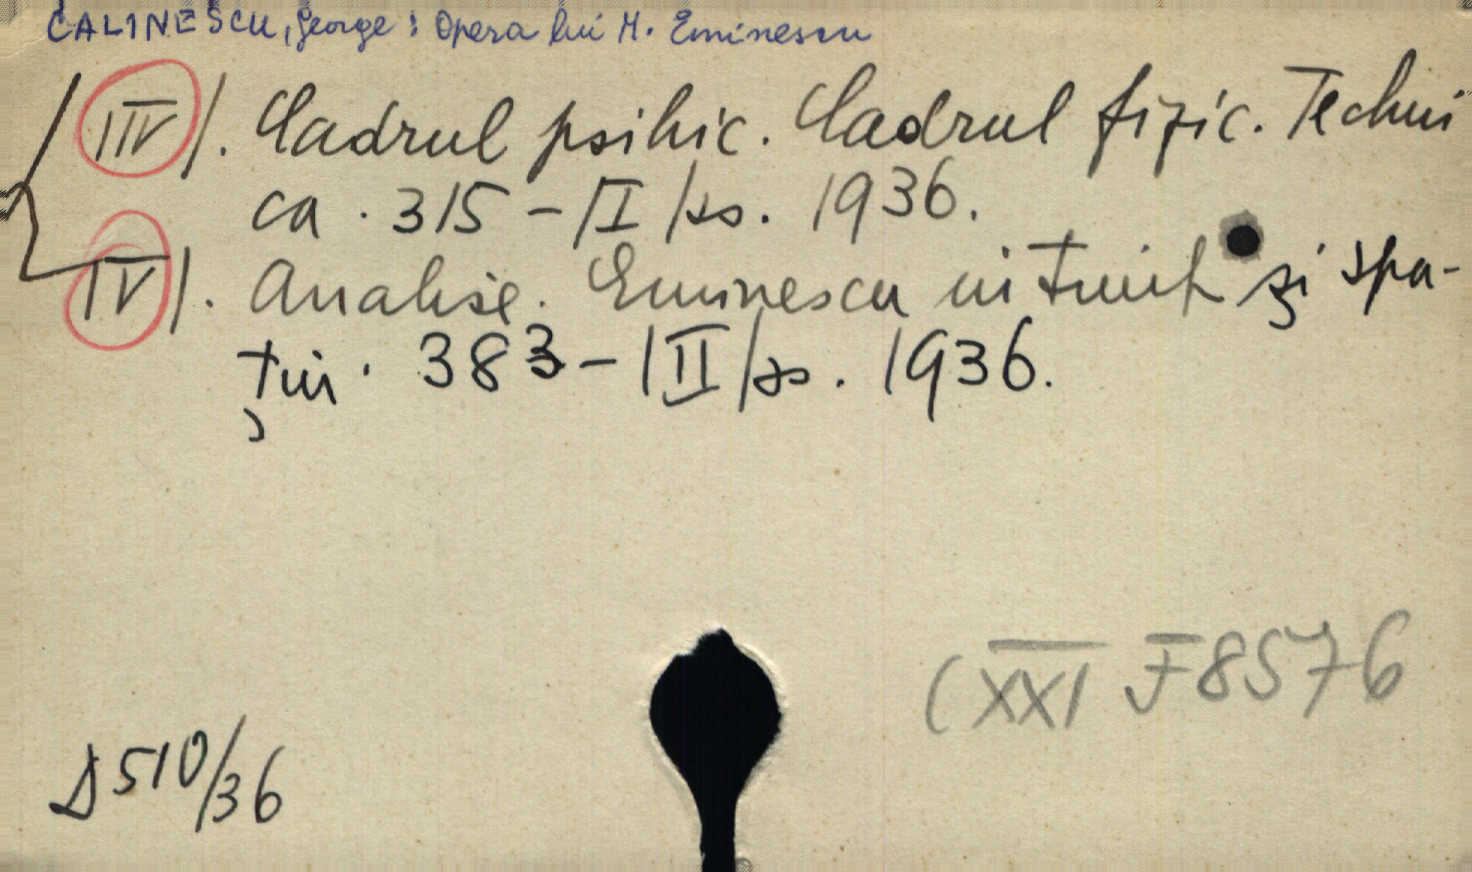 CALINESCU, George: Opera lui M. Eminescu
/III/. Cadrul psihic. Cadrul fizic. Techni
ca. 315 - /I/ ss. 1936.
IV/. Analise. Eminescu în timp și spa-
țiu. 383 - /II/ ss. 1936.
(XXI F 8576
D 510/36